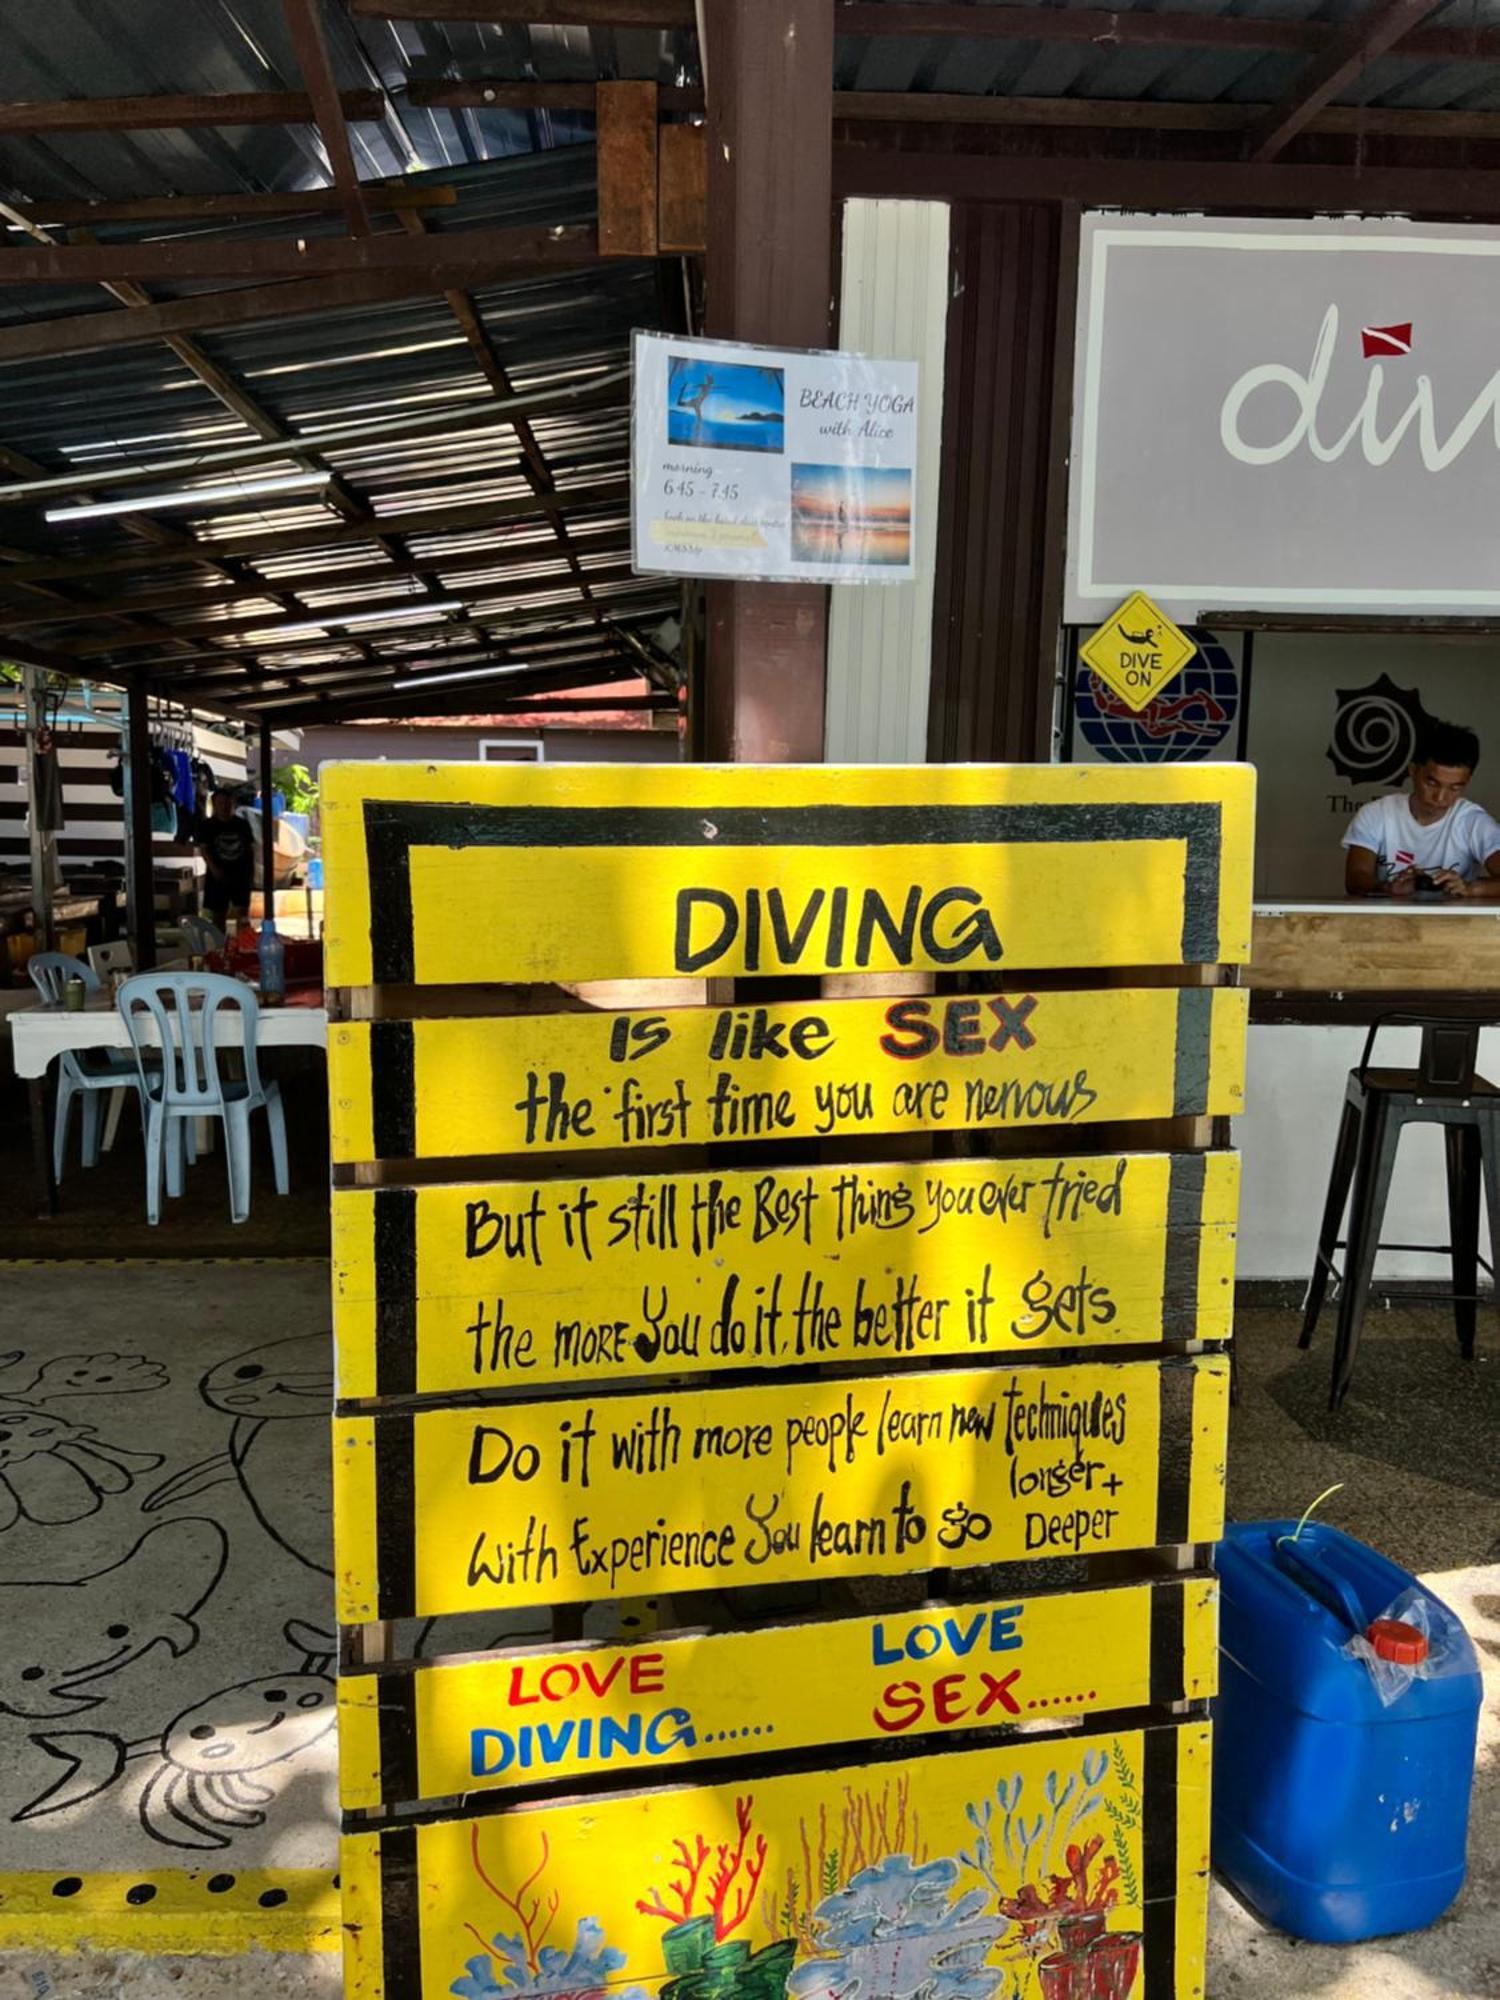 BEACH YOGA
with Alice
morning
6.45 - 7.45
div
DIVE
ON
The
DIVING
IS like SEX
the first time you are nervous
But it still the Best Thing you ever tried
the MORE You do it, the better it gets
Do it with more people learn new Techniques
With Experience You learn to go longer + Deeper
LOVE
DIVING......
LOVE
SEX......